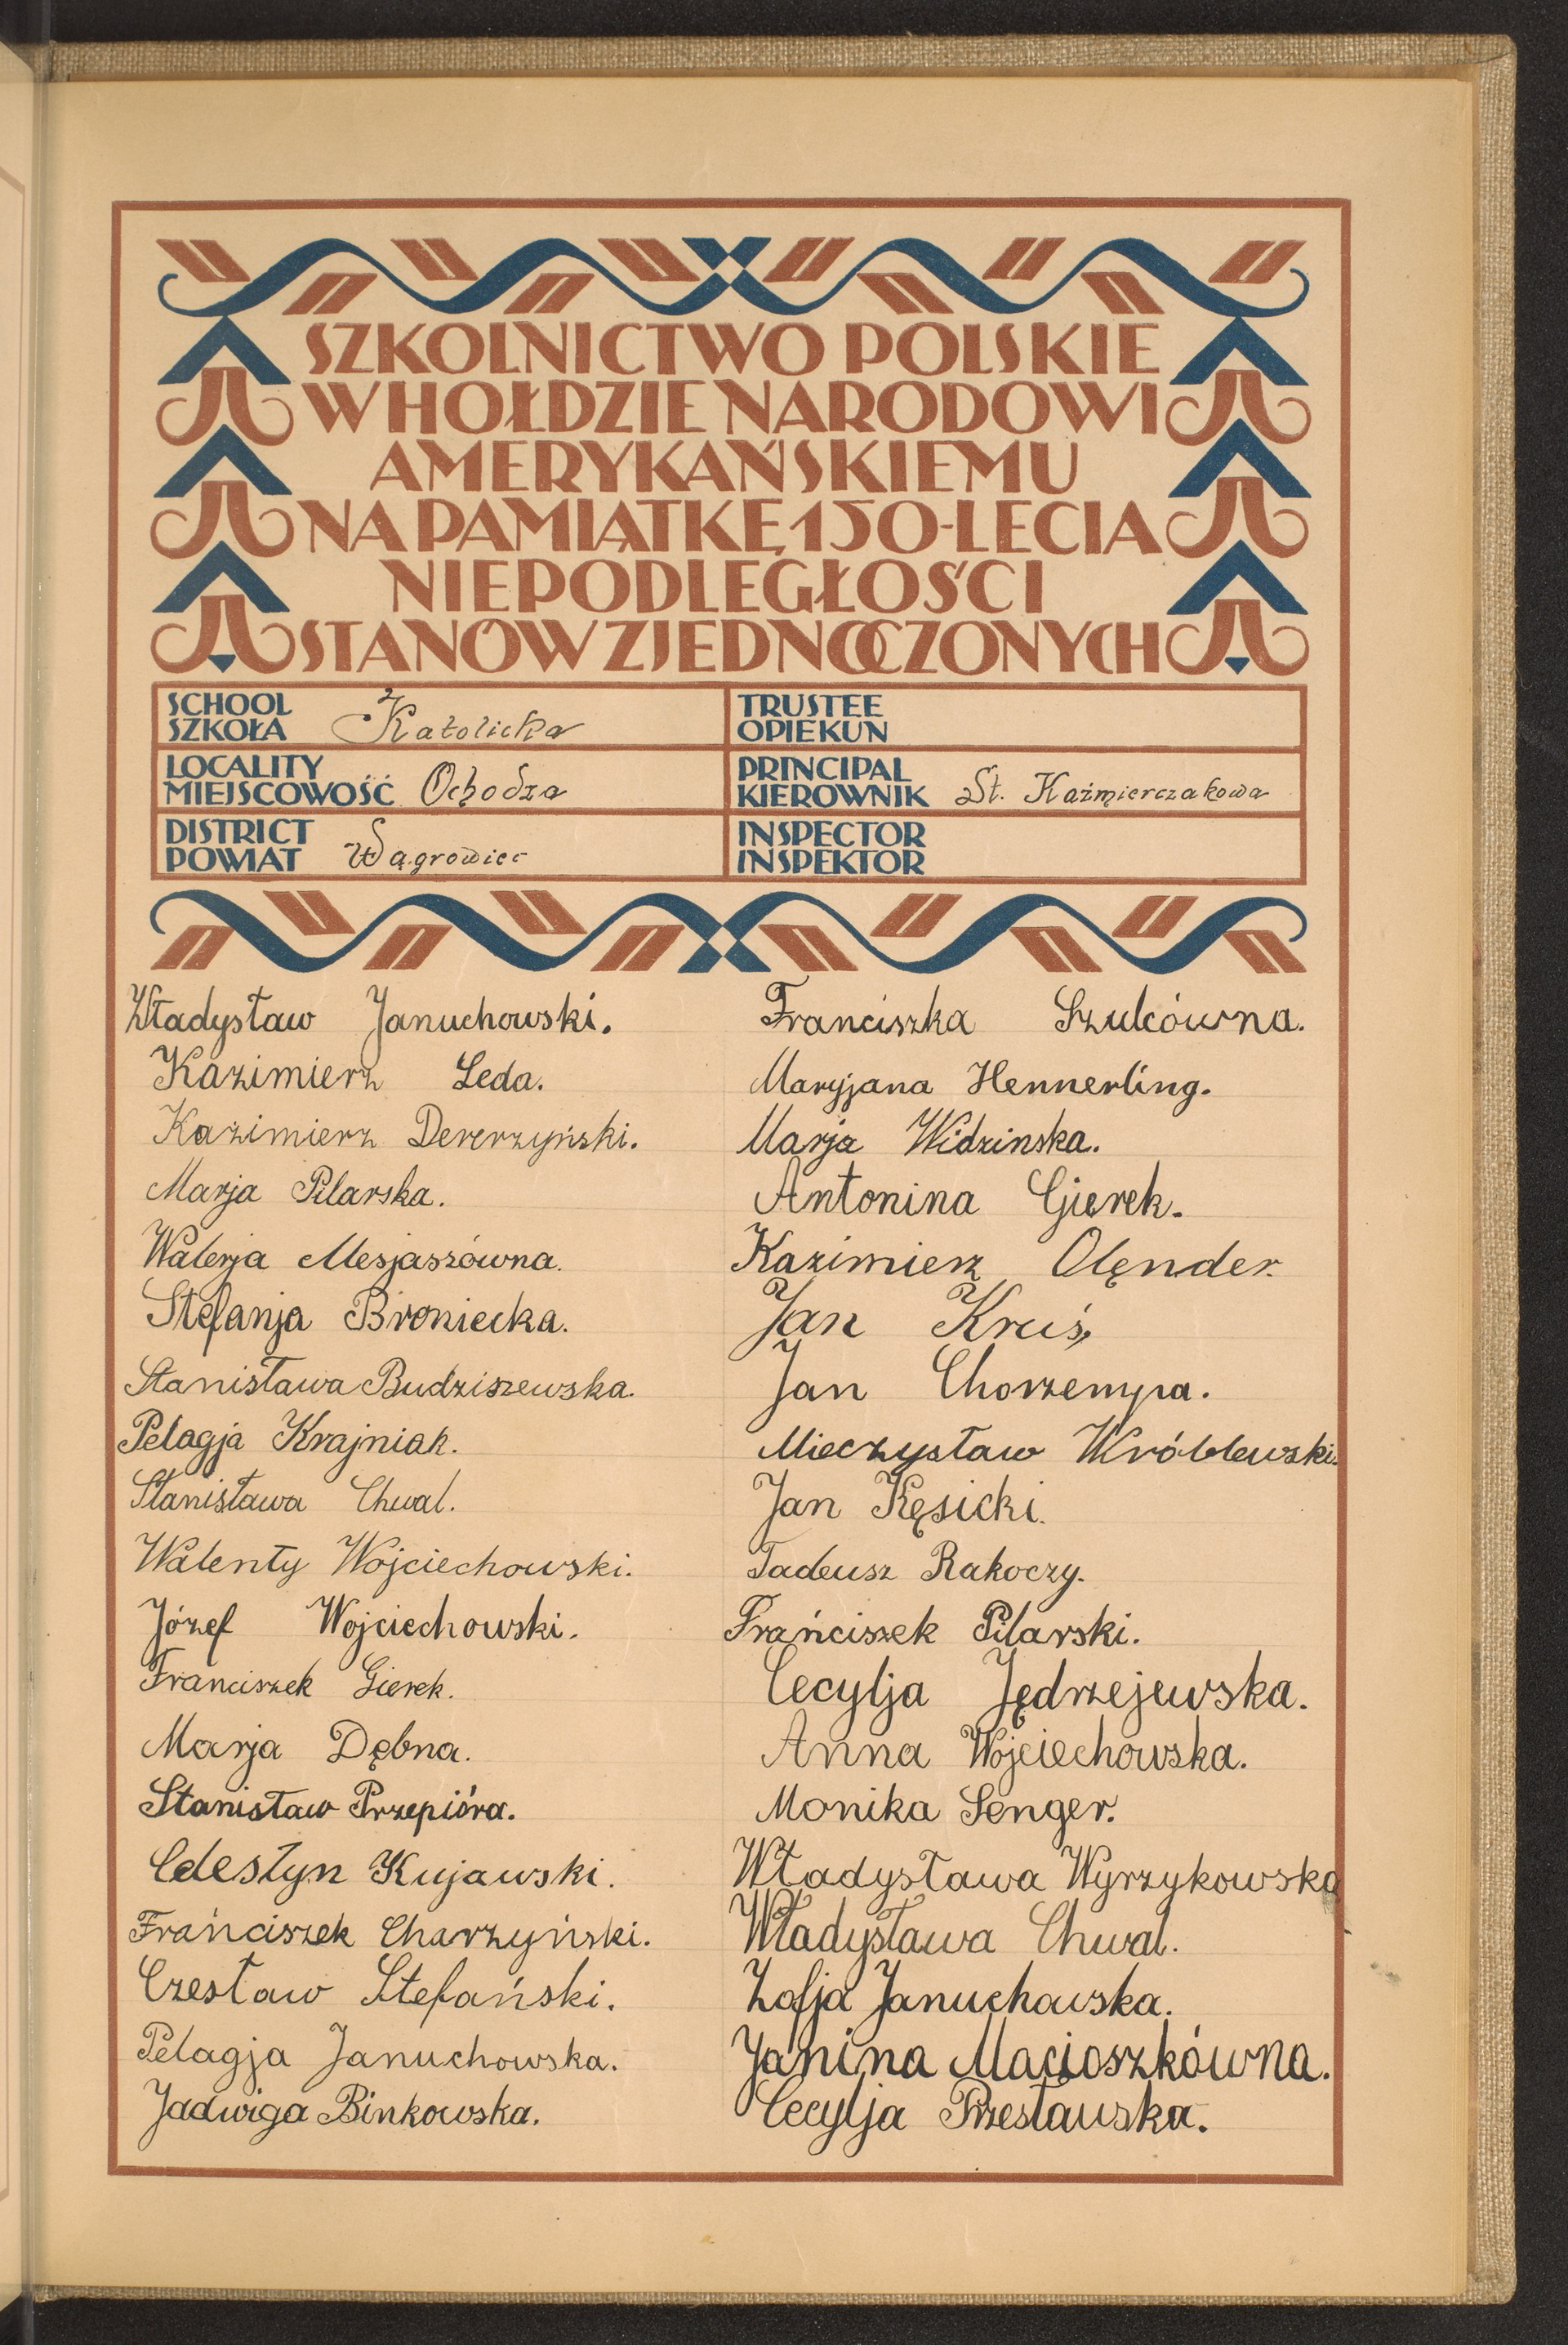 SZKOLNICTWO POLSKIE
W HOŁDZIE NARODOWI
AMERYKAŃSKIEMU
NA PAMIĄTKĘ 150-LECIA
NIEPODLEGŁOŚCI
STANÓW ZJEDNOCZONYCH
SCHOOL
SZKOŁA Katolicka
TRUSTEE
OPIEKUN
LOCALITY
MIEJSCOWOŚĆ Ochodza
PRINCIPAL
KIEROWNIK St. Kaźmierczakowa
DISTRICT
POWIAT Wągrowiec
INSPECTOR
INSPEKTOR
Władysław Januchowski.
Kazimierz Leda.
Kazimierz Dererzyński.
Marja Pilarska.
Walerja Mesjaszówna.
Stefanja Broniecka.
Stanisława Budziszewska.
Pelagja Krajniak.
Stanisława Chwal.
Walenty Wojciechowski.
Józef Wojciechowski.
Franciszek Gierek.
Marja Dębna.
Stanisław Przepióra.
Celestyn Kujawski.
Frańciszek Charzyński.
Czesław Stefański.
Pelagja Januchowska.
Jadwiga Binkowska.
Franciszka Szulcówna.
Maryjana Hennerling.
Marja Widzinska.
Antonina Gierek.
Kazimierz Olęnder.
Jan Kruś,
Jan Chorzempa.
Mieczysław Wróblewski.
Jan Kęsicki.
Tadeusz Rakoczy.
Frańciszek Pilarski.
Cecylja Jędrzejewska.
Anna Wojciechowska.
Monika Senger.
Władysława Wyrzykowska
Władysława Chwal.
Zofja Januchowska.
Janina Macioszkówna.
Cecylja Przesławska.